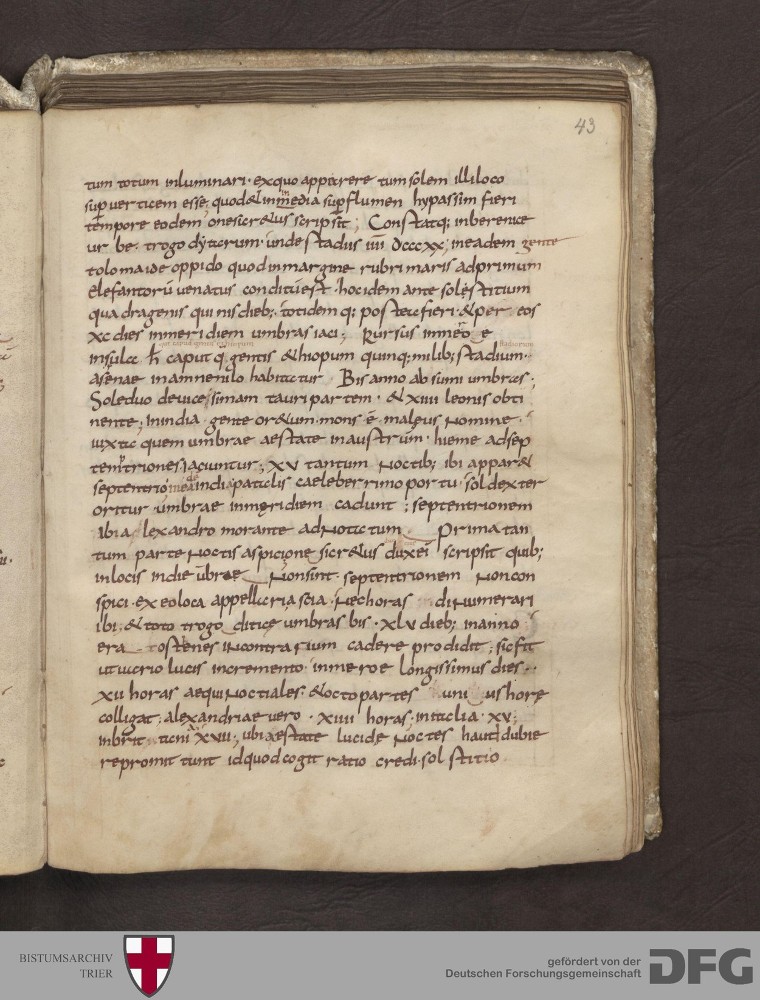 43
tum totum inluminari · exquo apparere tum solem illi loco
sup uerticem esse; quod & in media sup flumen hypassim fieri
tempore eodem onesicr&us scripsit; Constatq; inberenice
ur be · trogo dyticrum · unde stadiis iiii dccc xx; ineadem gente
tolomaide oppido quod in margine rubri maris adprimum
elefantorū uenatus conditū est · hoc idem ante solestitium
quadragenis quinis dieb; · totidem q; postea fieri · & per eos
xc dies inmeridiem umbras iaci; Rursus inmero e
insulae h caput q gentis &hiopum quinq; milib; stadium ·
asenae inamnenilo habitatur Bis anno absumi umbras;
Sole duo deuicessimam tauri partem · & xiiii leonis obti
nente; inindia gente or&um · mons ē maleus Nomine ·
iuxta quem umbrae aestate inaustrum · hieme adsep
temtriones iaciuntur; xv tantum Noctib; ibi appar&
septentrio in ea india patalis caeleberrimo portu · sol dexter
oritur umbrae inmeridiem cadunt; septentrionem
ibi alexandro morante adNotatum Prima tan
tum parte Noctis aspici one sicr&us dux ei scripsit quib;
inlocis indie ūbrae Nonsint · septentrionem Noncon
spici · ex ea loca appellari ascia · Nec horas dinumerari
ibi & toto trogo ditice umbras bis · xlv dieb; inanno
era tostenes incontrarium cadere prodidit; sic fit
ut uario lucis incremento · inmeroe longissimus dies ·
xii horas aequiNoctiales · & octo partes unius horę
colligat; alexandriae uero · xiiii horas; initalia · xv;
inbrit tania xvii; ubi aestate lucidę Noctes haut dubie
repromittunt idquod cogit ratio credi · sol stitio
BISTUMSARCHIV
TRIER
gefördert von der
Deutschen Forschungsgemeinschaft
DFG